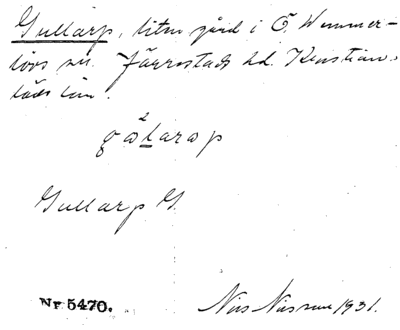 Gullarp, liten gård i Ö. Vemmer-
lövs sn. Järrestads hd. Kristian-
stads län.
Gullarp G.
Nr 5470.
Nils Nilsson 1931.